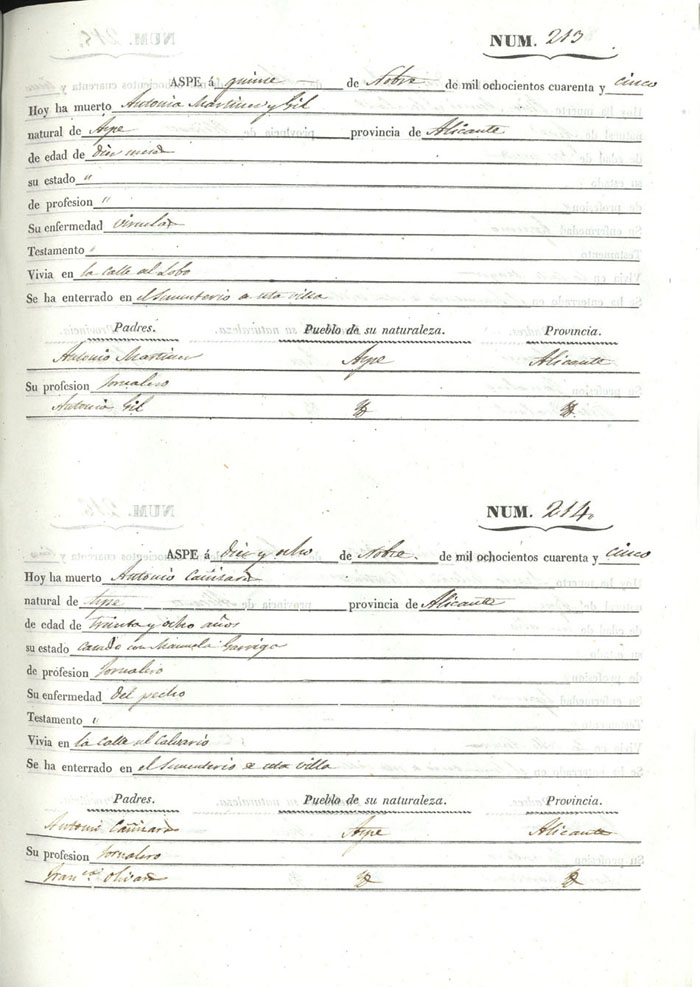 NUM. 213
ASPE á quince de Nobre de mil ochocientos cuarenta y cinco
Hoy ha muerto Antonia Martinez y Gil
natural de Aspe provincia de Alicante
de edad de diez meses
su estado "
de profesion "
Su enfermedad viruelas
Testamento "
Vivia en la calle del Lobo
Se ha enterrado en el Sementerio de esta villa
Padres. Pueblo de su naturaleza. Provincia.
Antonio Martinez Aspe Alicante
Su profesion Jornalero
Antonia Gil
NUM. 214
ASPE á diez y ocho de Nobre. de mil ochocientos cuarenta y cinco
Hoy ha muerto Antonio Cañizares
natural de Aspe provincia de Alicante
de edad de treinta y ocho años
su estado casado con Manuela Garrigo
de profesion Jornalero
Su enfermedad del pecho
Testamento "
Vivia en la calle del Calvario
Se ha enterrado en el Sementerio de esta villa
Padres. Pueblo de su naturaleza. Provincia.
Antonio Cañizares Aspe Alicante
Su profesion Jornalero
Fran.ca Olivares